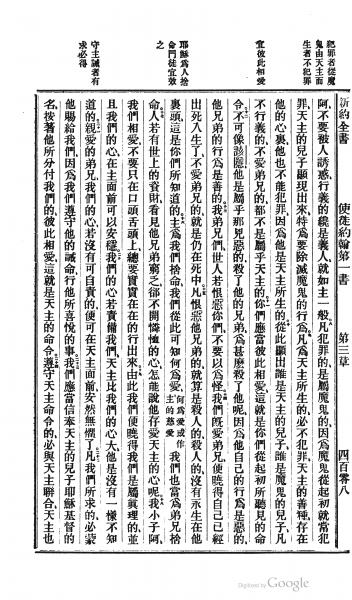 新約全書　使徒約翰第一書　第三章　四百零八
犯罪者從魔
鬼由天主而
生者不犯罪
宜彼此相愛
耶穌爲人捨
命門徒宜效
之
守主誡者有
求必得
阿、不要被人誘惑、行義的纔是義人、就如主一般、凡犯罪的是屬魔鬼的、因爲魔鬼從起初就常犯
罪、天主的兒子顯現出來、特爲要除滅魔鬼的行爲、凡爲天主所生的必不犯罪、天主的善種存在
他的心裏、他也不能犯罪、因爲他是天主所生的、從此顯出誰是天主的兒子、誰是魔鬼的兒子、凡
不行義的不愛弟兄的、都不是屬乎天主的、你們應當彼此相愛、這就是你們從起初所聽見的命
令、不可像該隱、他是屬乎那兇惡的、殺了他的弟兄、爲甚麽殺了他呢、因爲他自己的行爲是惡的、
他兄弟的行爲是善的、我弟兄們、世人若恨惡你們、不要以爲怪、我們旣愛弟兄、便曉得自己已經
出死入生了、不愛弟兄的、就是仍在死中、凡恨惡他弟兄的、就算是殺人的、殺人的、沒有永生在他
裏頭、這是你們所知道的、主爲我們捨命、我們從此可知何爲愛、何爲愛或作主的慈愛 我們也當爲弟兄捨
命、人若有世上的資財、看見他兄弟窮乏、卻不開憐恤的心、怎能說他存愛天主的心呢、我小子阿、
我們相愛、不要只在口頭舌頭上、總要實實在在的行出來、由此我們便曉得我們是屬眞理的、並
且我們的心在主面前可以安穩、我們的心若責備我們、天主比我們的心大、他是沒有一樣不知
道的、親愛的弟兄、我們的心若沒有可自責的、便可在天主面前安然無懼了、凡我們所求的必蒙
他賜給我們、因爲我們遵守他的誡命、行他所喜悅的事、我們應當信奉天主的兒子耶穌基督的
名、按著他所分付我們的、彼此相愛、這就是天主的命令、遵守天主命令的、必與天主聯合、天主也
Digitized by Google